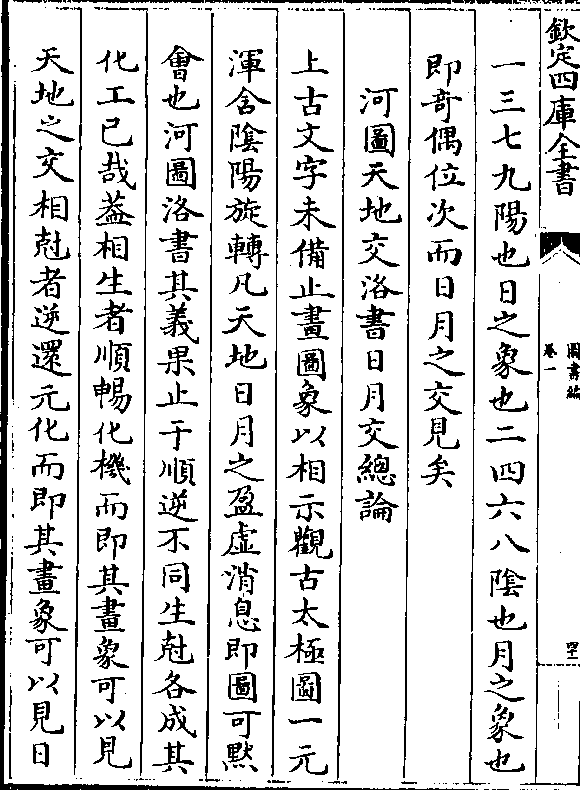 欽定四庫全書
圖書編
卷一
一三七九陽也日之象也二四六八陰也月之象也
即奇偶位次而日月之交見矣
河圖天地交洛書日月交總論
上古文字未備止畫圖象以相示觀古太極圖一元
渾含陰陽旋轉凡天地日月之盈虛消息即圖可黙
㑹也河圖洛書其義果止于順逆不同生尅各成其
化工已哉葢相生者順暢化機而即其畫象可以見
天地之交相尅者逆還元化而即其畫象可以見日